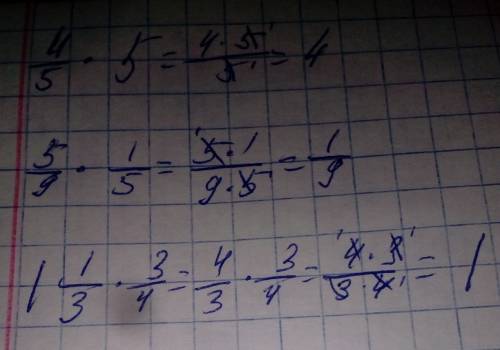 4/5 · 5 = 4·5/5 = 4
5/9 · 1/5 = 5·1/9·5 = 1/9
1 1/3 · 3/4 = 4/3 · 3/4 = 4·3/3·4 = 1